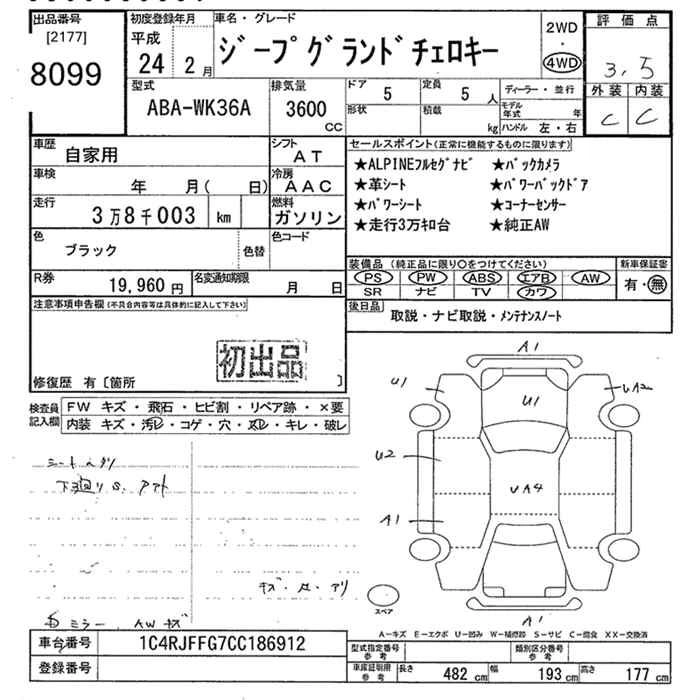 出品番号
[2177]
8099
初度登録年月
平成
24 2月
車名・グレード
ジープグランドチェロキー
2WD
・
4WD
評価点
3,5
外装 内装
C C
型式
ABA-WK36A
排気量
3600
CC
ドア 5
定員 5人
形状
積載 kg
ディーラー・並行
モデル年式 年
ハンドル 左・右
車歴
自家用
シフト
AT
車検
年 月( 日)
冷房
AAC
走行
3万8千003 km
燃料
ガソリン
色
ブラック
色替
色コード
R券
19,960円
名変通知期限
月 日
セールスポイント(正常に機能するものに限ります)
★ALPINEフルセグナビ ★バックカメラ
★革シート ★パワーバックドア
★パワーシート ★コーナーセンサー
★走行3万キロ台 ★純正AW
装備品 (純正品に限り○をつけてください)
PS PW ABS エアB AW
SR ナビ TV カワ
新車保証書
有・無
後日品
取説・ナビ取説・メンテナンスノート
注意事項申告欄(不具合内容等は具体的に記入して下さい)
初出品
修復歴 有〔箇所 〕
検査員
記入欄
FW キズ・飛石・ヒビ割・リペア跡・×要
内装 キズ・汚レ・コゲ・穴・スレ・キレ・破レ
A1
U1
U1
UA2
U2
UA4
A1
A1
スペア
ミラー、AWキズ
A-キズ E-エクボ U-凹み W-補修跡 S-サビ C-腐食 XX-交換済
車台番号
1C4RJFFG7CC186912
登録番号
型式指定番号
参考
類別区分番号
参考
車庫証明用
参考
長さ 482cm 幅 193cm 高さ 177cm